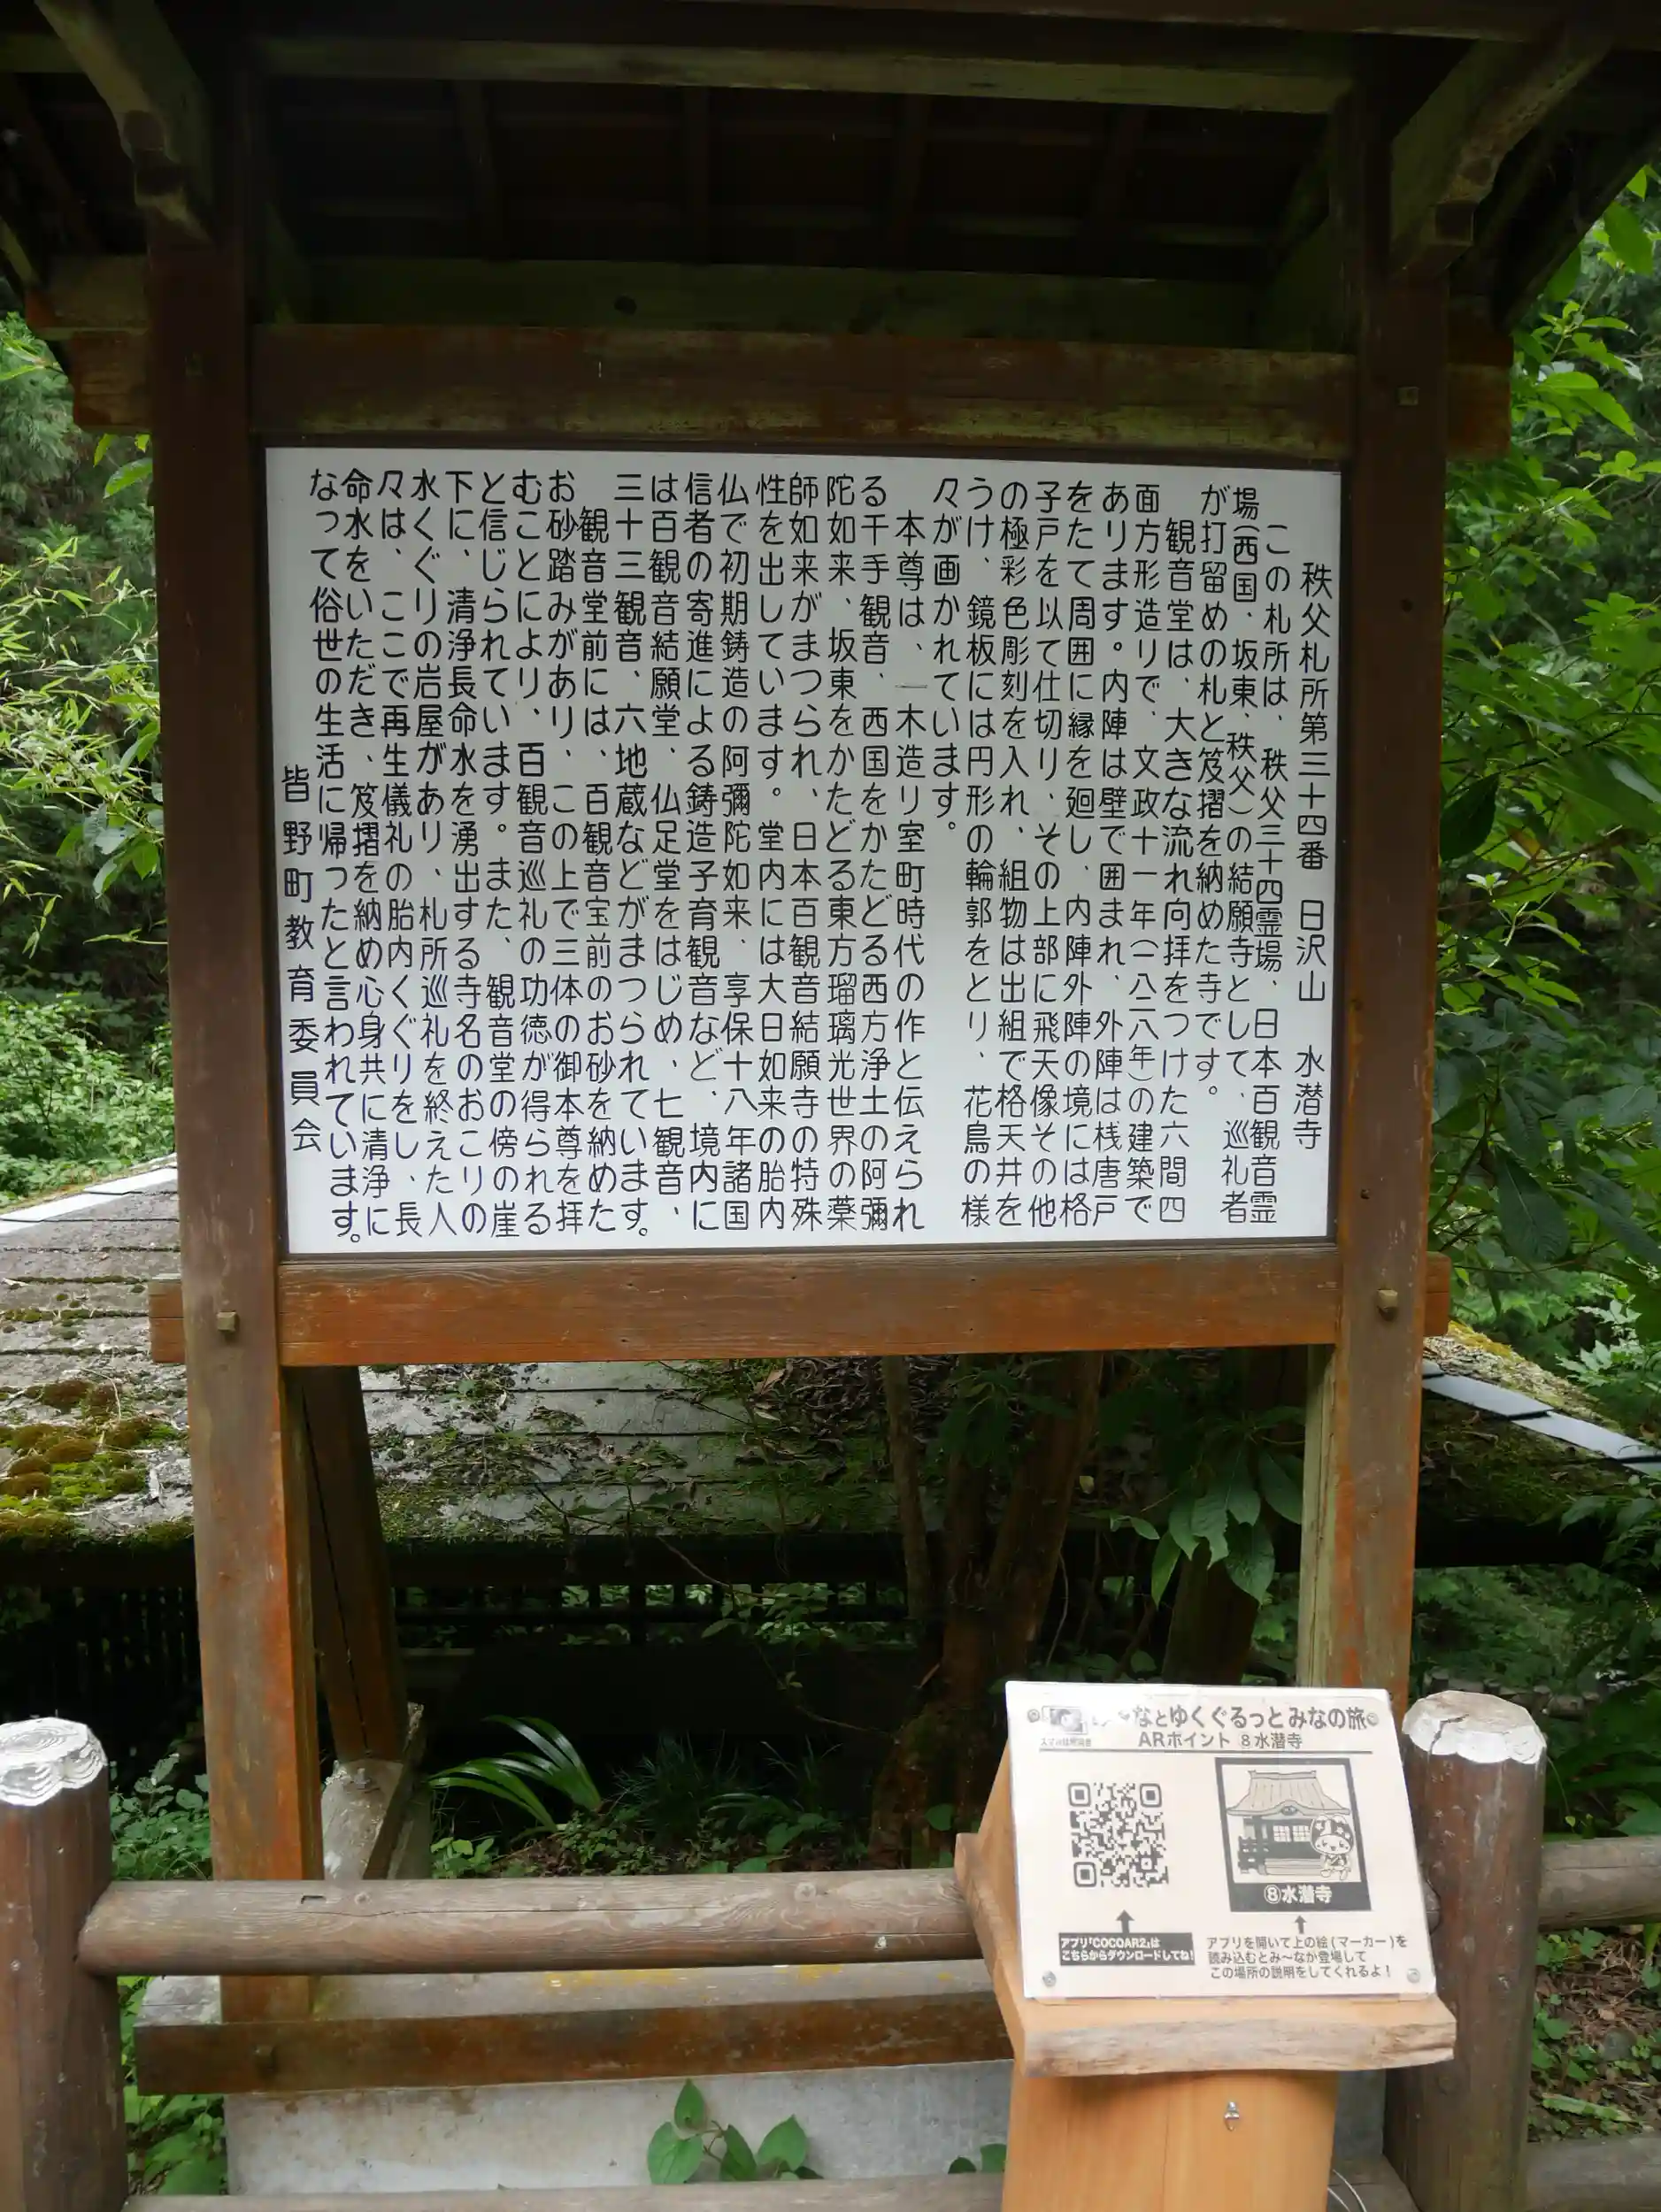 秩父札所第三十四番　日沢山　水潜寺
この札所は、秩父三十四霊場、日本百観音霊
場（西国、坂東、秩父）の結願寺として、巡礼者
が打留めの札と笈摺を納めた寺です。
観音堂は、大きな流れ向拝をつけた六間四
面方形造りで、文政十一年（一八二八年）の建築で
あります。内陣は壁で囲まれ、外陣は桟唐戸
をたて周囲に縁を廻し、内陣外陣の境には格
子戸を以て仕切り、その上部に飛天像その他
の極彩色彫刻を入れ、組物は出組で格天井を
うけ、鏡板には円形の輪郭をとり、花鳥の様
々が画かれています。
本尊は、一木造り室町時代の作と伝えられ
る千手観音、西国をかたどる西方浄土の阿彌
陀如来、坂東をかたどる東方瑠璃光世界の薬
師如来がまつられ、日本百観音結願寺の特殊
性を出しています。堂内には大日如来の胎内
仏で初期鋳造の阿彌陀如来、享保十八年諸国
信者の寄進による鋳造子育観音など、境内に
は百観音結願堂、仏足堂をはじめ、七観音、
三十三観音、六地蔵などがまつられています。
観音堂前には、百観音宝前のお砂を納めた
お砂踏みがあり、この上で三体の御本尊を拝
むことにより、百観音巡礼の功徳が得られる
と信じられています。また、観音堂の傍の崖
下に、清浄長命水を湧出する寺名のおこりの
水くぐりの岩屋があり、札所巡礼を終えた人
々は、ここで再生儀礼の胎内くぐりをし、長
命水をいただき、笈摺を納め心身共に清浄に
なって俗世の生活に帰ったと言われています。
皆野町教育委員会
なとゆくぐるっとみなの旅
ARポイント ⑧水潜寺
⑧水潜寺
アプリ「COCOAR2」は
こちらからダウンロードしてね！
アプリを開いて上の絵(マーカー)を
読み込むとみ〜なが登場して
この場所の説明をしてくれるよ！